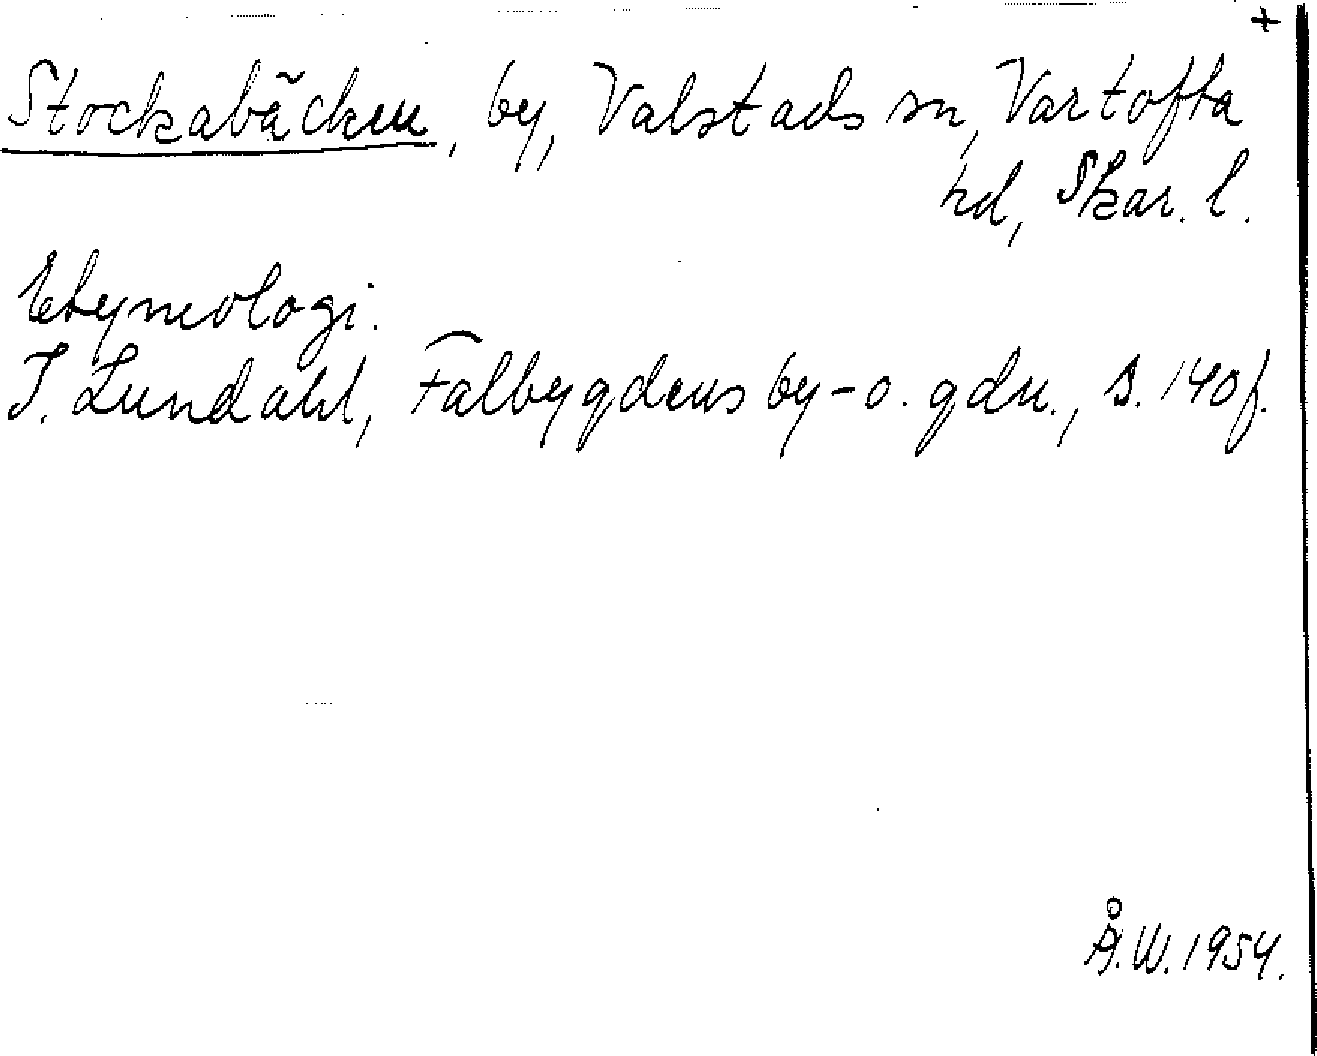 +
Stockabäcken, by, Valstads sn, Vartofta
hd, Skar. l.
Etymologi.
I. Lundahl, Falbygdens by- o. gdn., s. 140 f.
Å. W. 1954.